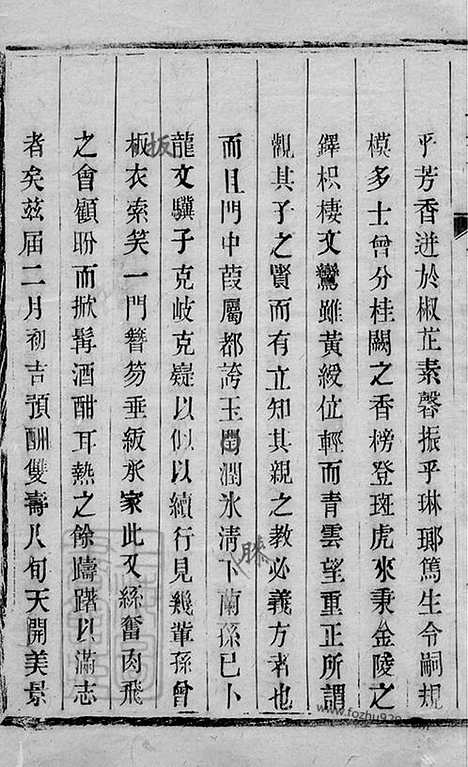 乎芳香迸於椒茞素馨振乎琳瑯篤生令嗣規
模多士曾分桂闕之香榜登斑虎來秉金陵之
鐸枳棲文鸞雖黃綬位輕而青雲望重正所謂
觀其子之賢而有立知其親之教必義方者也
而且門中葭屬都誇玉潤冰清膝下蘭孫已卜
龍文驥子克岐克嶷以似以續行見幾輩孫曾
扳衣索笑一門簪笏垂紱承家此又絲奮肉飛
之會顧盼而掀髯酒酣耳熱之餘躊躇以滿志
者矣茲屆二月初吉預酬雙壽八旬天開美景
www.fozhu920.com